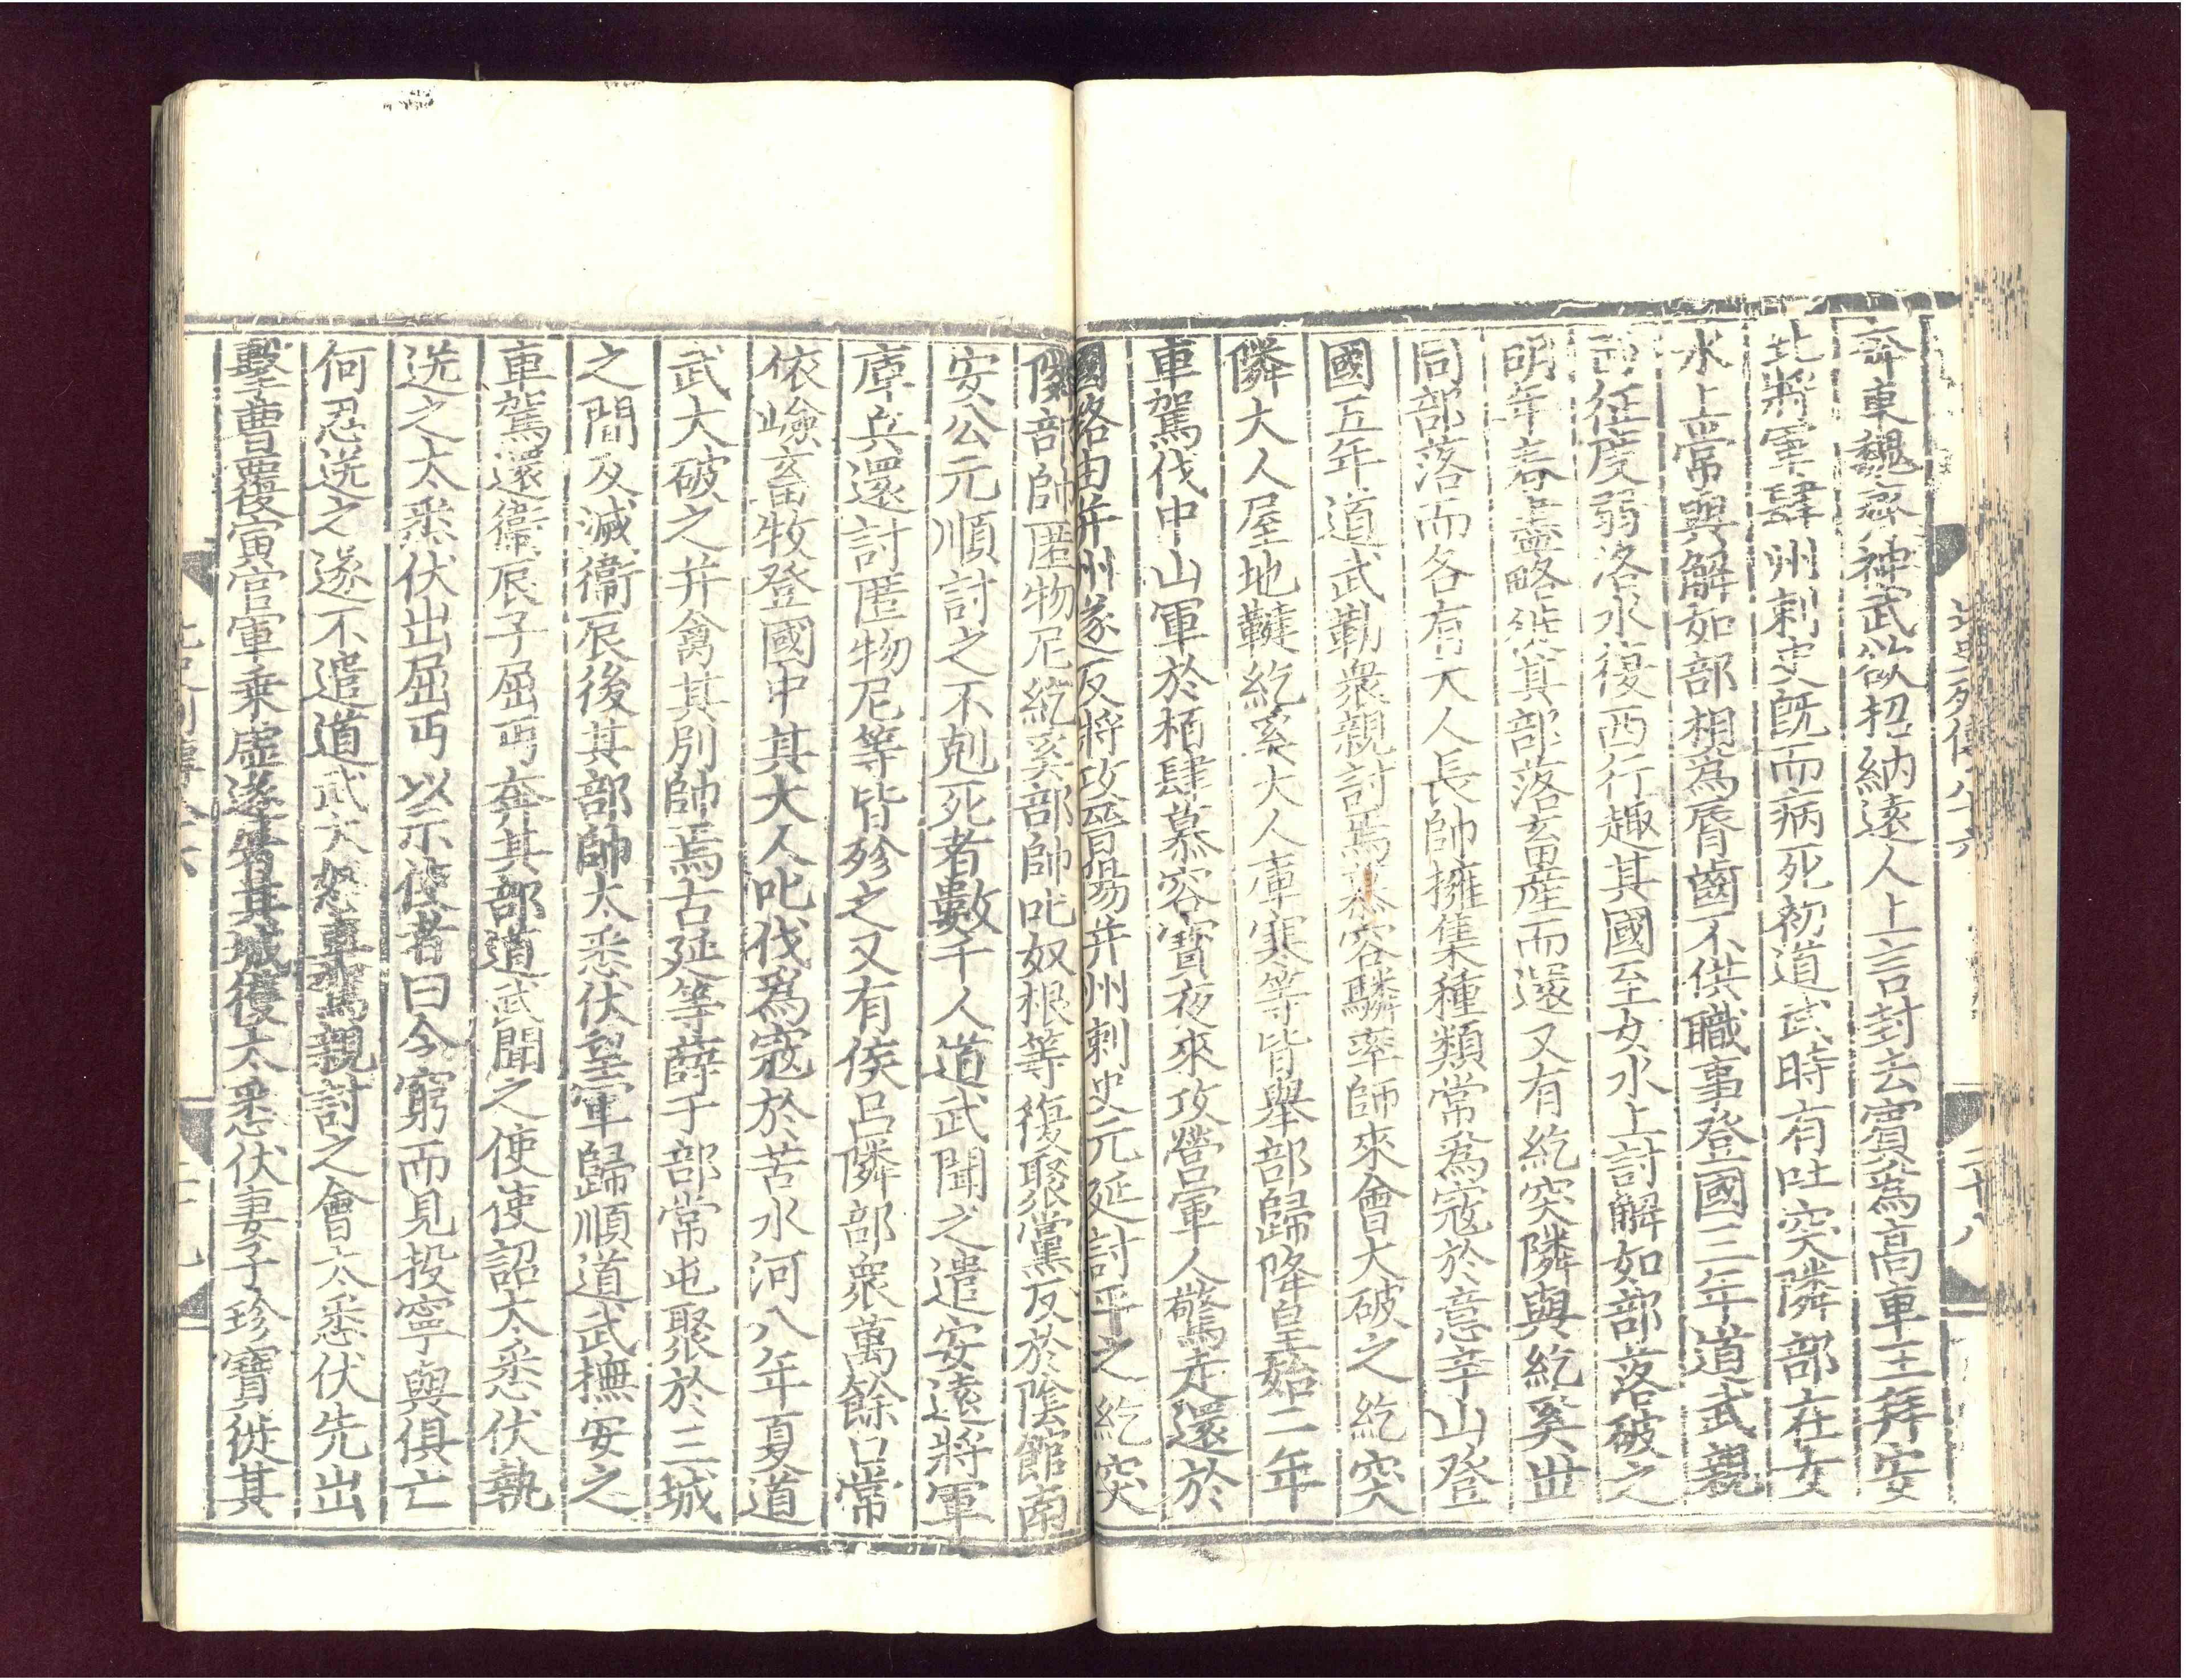 北史列傳八十六 二十八
奔東魏齊神武欲招納遠人上言封去賓爲高車王拜安
北將軍肆州刺史旣而病死初道武時有吐突隣部在女
水上常與解如部相爲脣齒不供職事登國三年道武親
西征度弱洛水復西行趣其國至女水上討解如部落破之
明年春盡略徙其部落畜産而還又有紇突隣與紇奚世
同部落而各有大人長帥擁集種類常爲寇於意辛山登
國五年道武勒衆親討焉慕容驎率師來會大破之紇突
隣大人屋地鞬紇奚大人庫寒等皆舉部歸降皇始二年
車駕伐中山軍於栢肆慕容寶夜來攻營軍人驚走還於
國路由并州遂反將攻晉陽并州刺史元延討平之紇突
隣部帥匿物尼紇奚部帥叱奴根等復聚黨反於陰館南
安公元順討之不剋死者數千人道武聞之遣安遠將軍
庫兵還討匿物尼等皆殄之又有侯呂隣部衆萬餘口常
依嶮畜牧登國中其大人叱伐爲寇於苦水河八年夏道
武大破之并禽其別帥焉古延等薛于部常屯聚於三城
之間及滅衞辰後其部帥太悉伏望軍歸順道武撫安之
車駕還衞辰子屈丐奔其部道武聞之使使詔太悉伏執
送之太悉伏出屈丐以示使者曰今窮而見投寧與俱亡
何忍送之遂不遣道武大怒車駕親討之會太悉伏先出
擊曹覆寅官軍乗虛遂屠其城獲太悉伏妻子珍寶徙其
北史列傳八十六 二十九